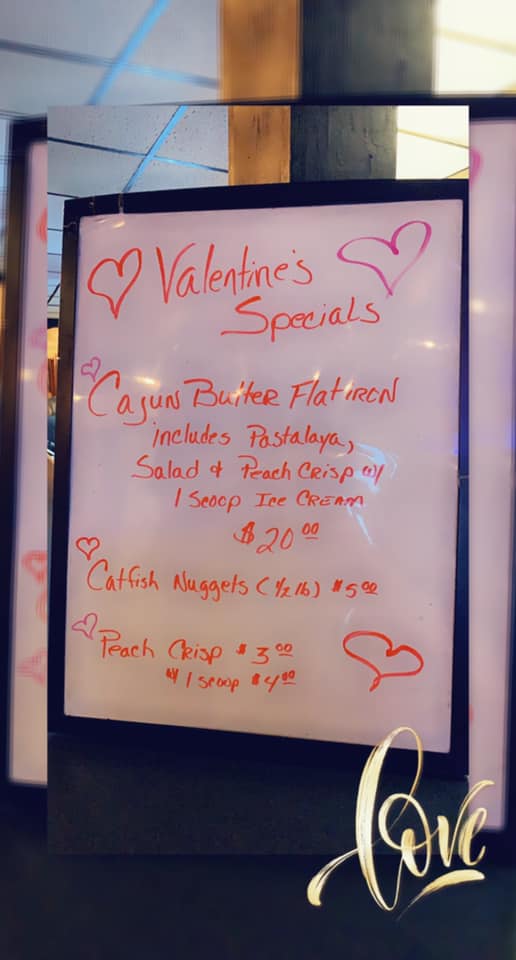 Valentine's
Specials
Cajun Butter Flatiron
includes Pastalaya,
Salad & Peach Crisp w/
1 Scoop Ice Cream
$20.00
Catfish Nuggets (1/2 lb) $5.00
Peach Crisp $3.00
w/ 1 scoop $4.00
Love